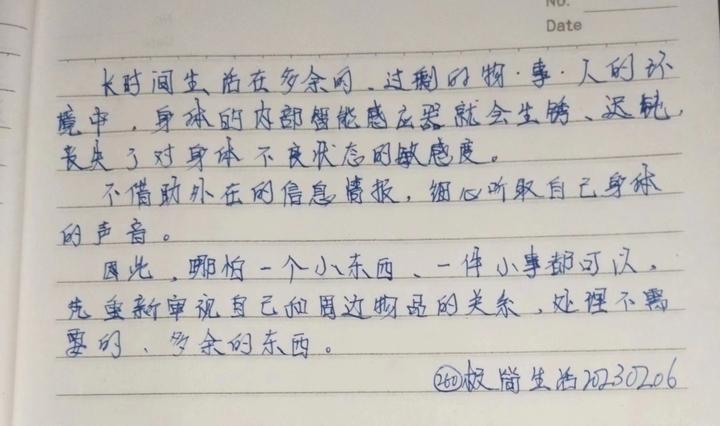 No.
Date
长时间生活在多余的、过剩的物·事·人的环
境中，身体的内部智能感应器就会生锈、迟钝，
丧失了对身体不良状态的敏感度。
不借助外在的信息情报，细心听取自己身体
的声音。
因此，哪怕一个小东西、一件小事都可以，
先重新审视自己和周边物品的关系，处理不需
要的、多余的东西。
(260)极简生活20230206